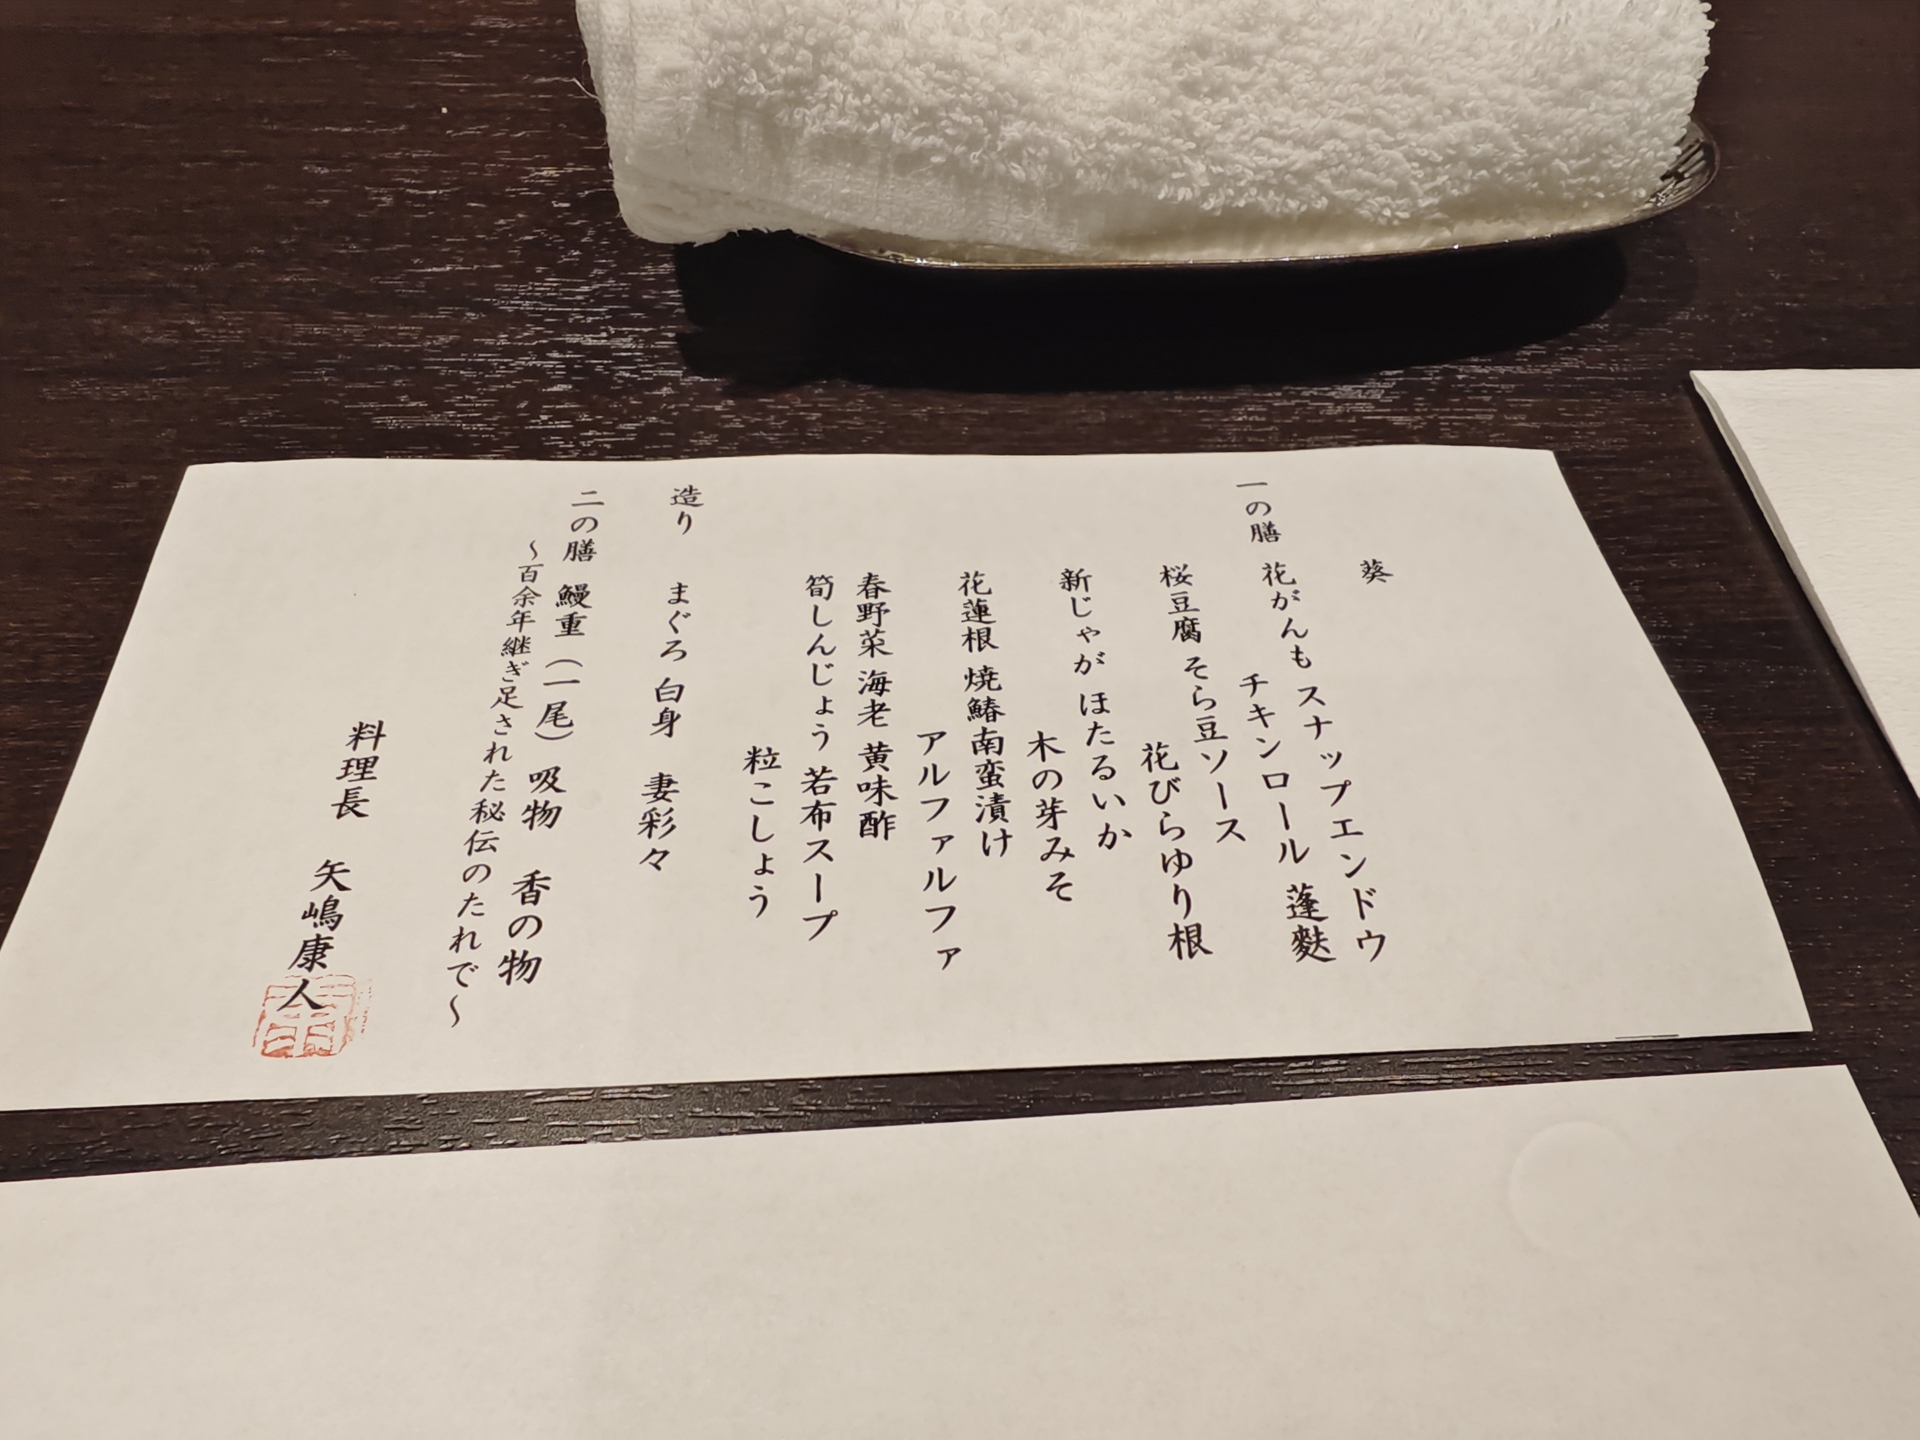 葵
一の膳 花がんも スナップエンドウ
チキンロール 蓬麩
桜豆腐 そら豆ソース
花びらゆり根
新じゃが ほたるいか
木の芽みそ
花蓮根 焼鰆南蛮漬け
アルファルファ
春野菜 海老 黄味酢
筍しんじょう 若布スープ
粒こしょう
造り まぐろ 白身 妻彩々
二の膳 鰻重（一尾） 吸物 香の物
～百余年継ぎ足された秘伝のたれで～
料理長 矢嶋康人